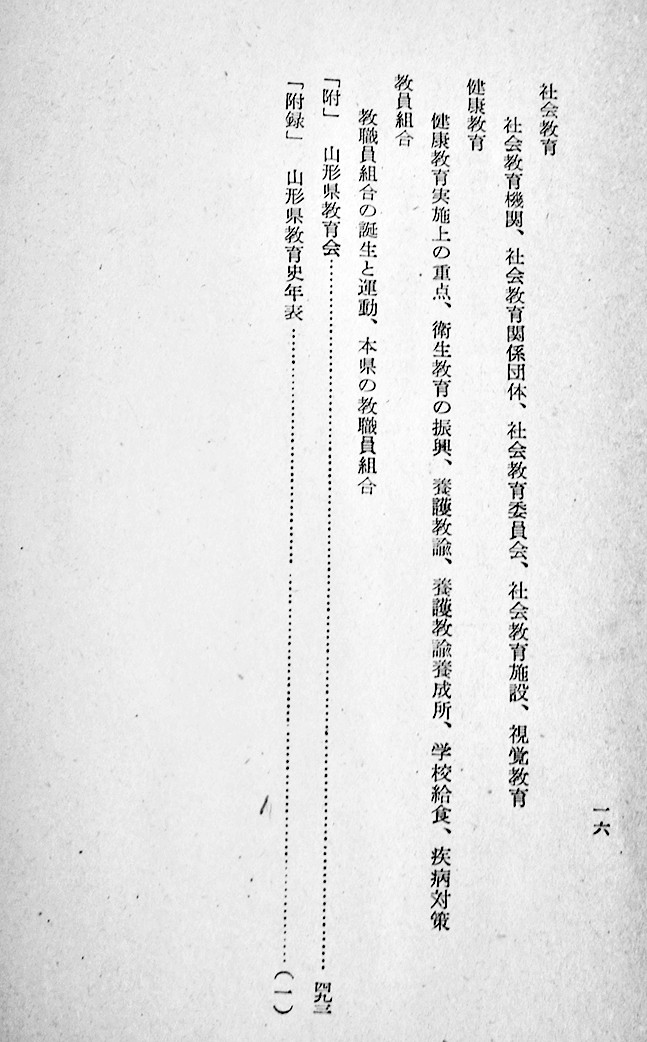 社会教育
社会教育機関、社会教育関係団体、社会教育委員会、社会教育施設、視覚教育
健康教育
健康教育実施上の重点、衛生教育の振興、養護教諭、養護教諭養成所、学校給食、疾病対策
教員組合
教職員組合の誕生と運動、本県の教職員組合
「附」 山形県教育会……………………四九三
「附録」 山形県教育史年表……………………(一)
一六